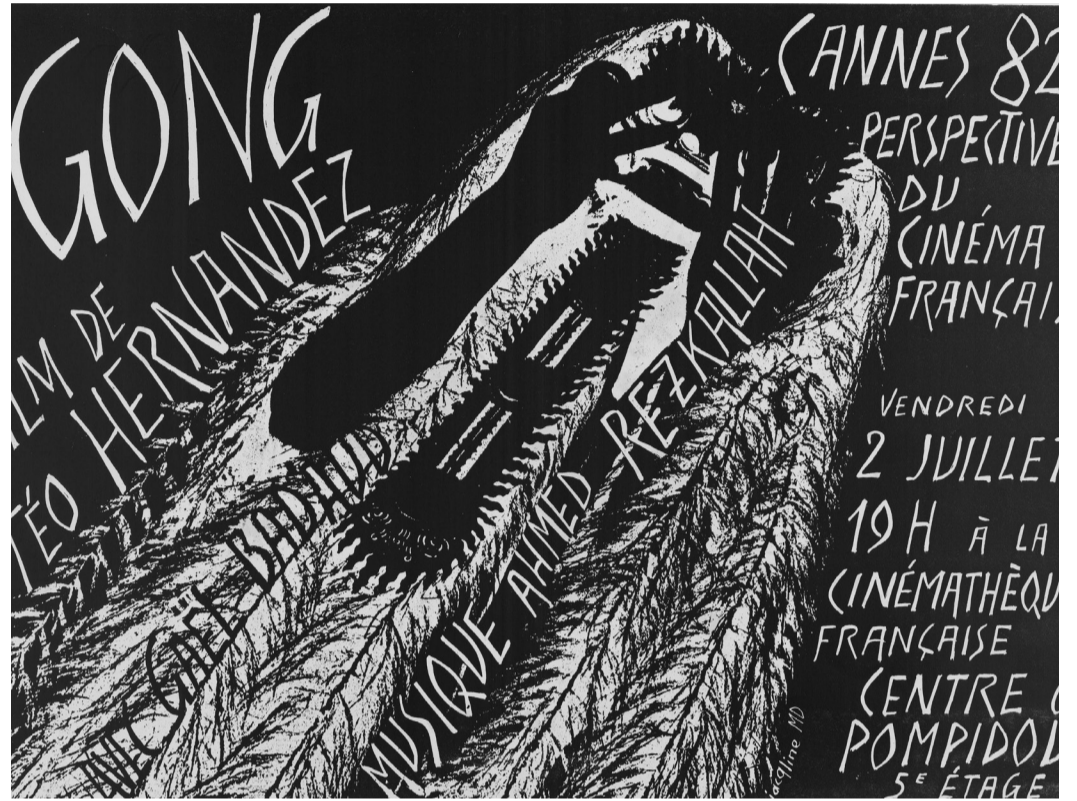 GONG
ILM DE
TÉO HERNANDEZ
AVEC GAËL BADAUD
MUSIQUE AHMED REZKALLAH
CANNES 82
PERSPECTIVE
DU
CINÉMA
FRANÇAI
VENDREDI
2 JUILLET
19 H À LA
CINÉMATHÈQU
FRANÇAISE
CENTRE G
POMPIDOU
5E ÉTAGE